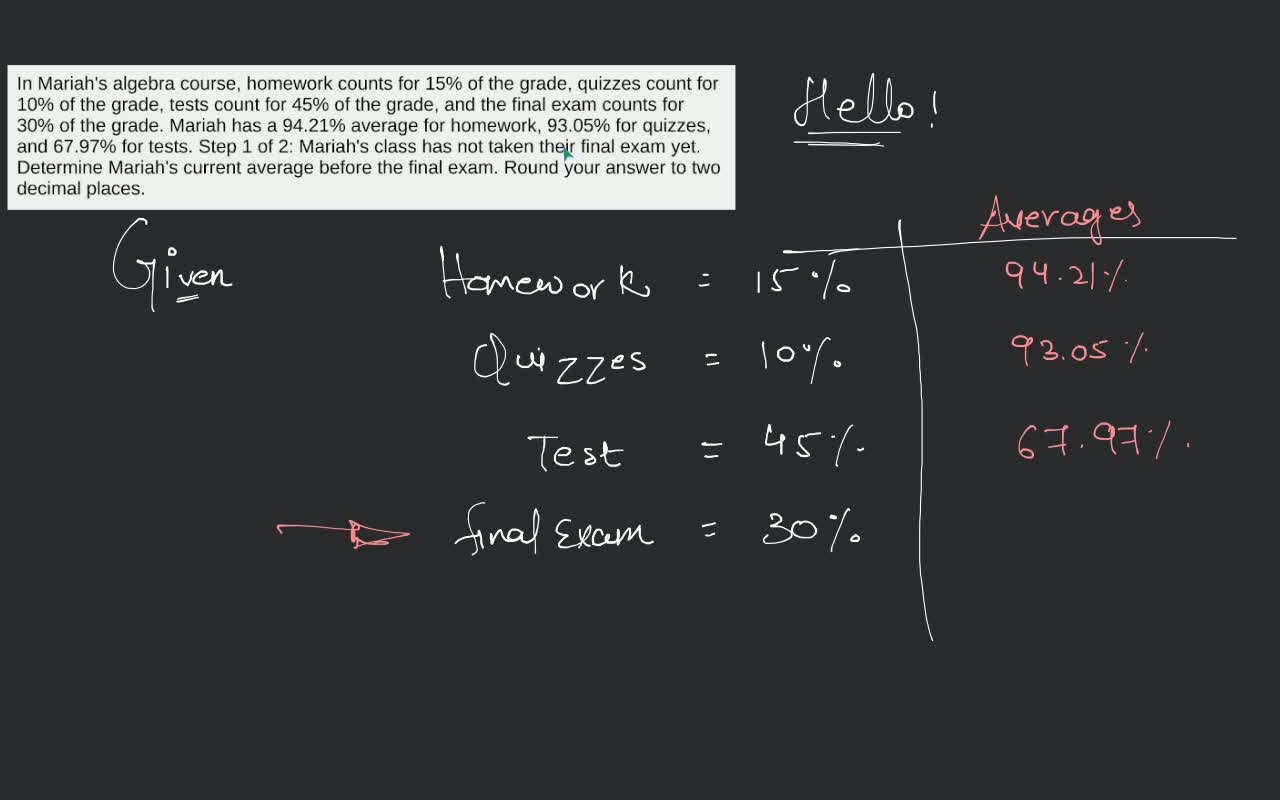 In Mariah's algebra course, homework counts for 15% of the grade, quizzes count for
10% of the grade, tests count for 45% of the grade, and the final exam counts for
30% of the grade. Mariah has a 94.21% average for homework, 93.05% for quizzes,
and 67.97% for tests. Step 1 of 2: Mariah's class has not taken their final exam yet.
Determine Mariah's current average before the final exam. Round your answer to two
decimal places.
Hello!
Averages
Given
Homework = 15% 94.21%
Quizzes = 10% 93.05%
Test = 45% 67.97%.
final Exam = 30%